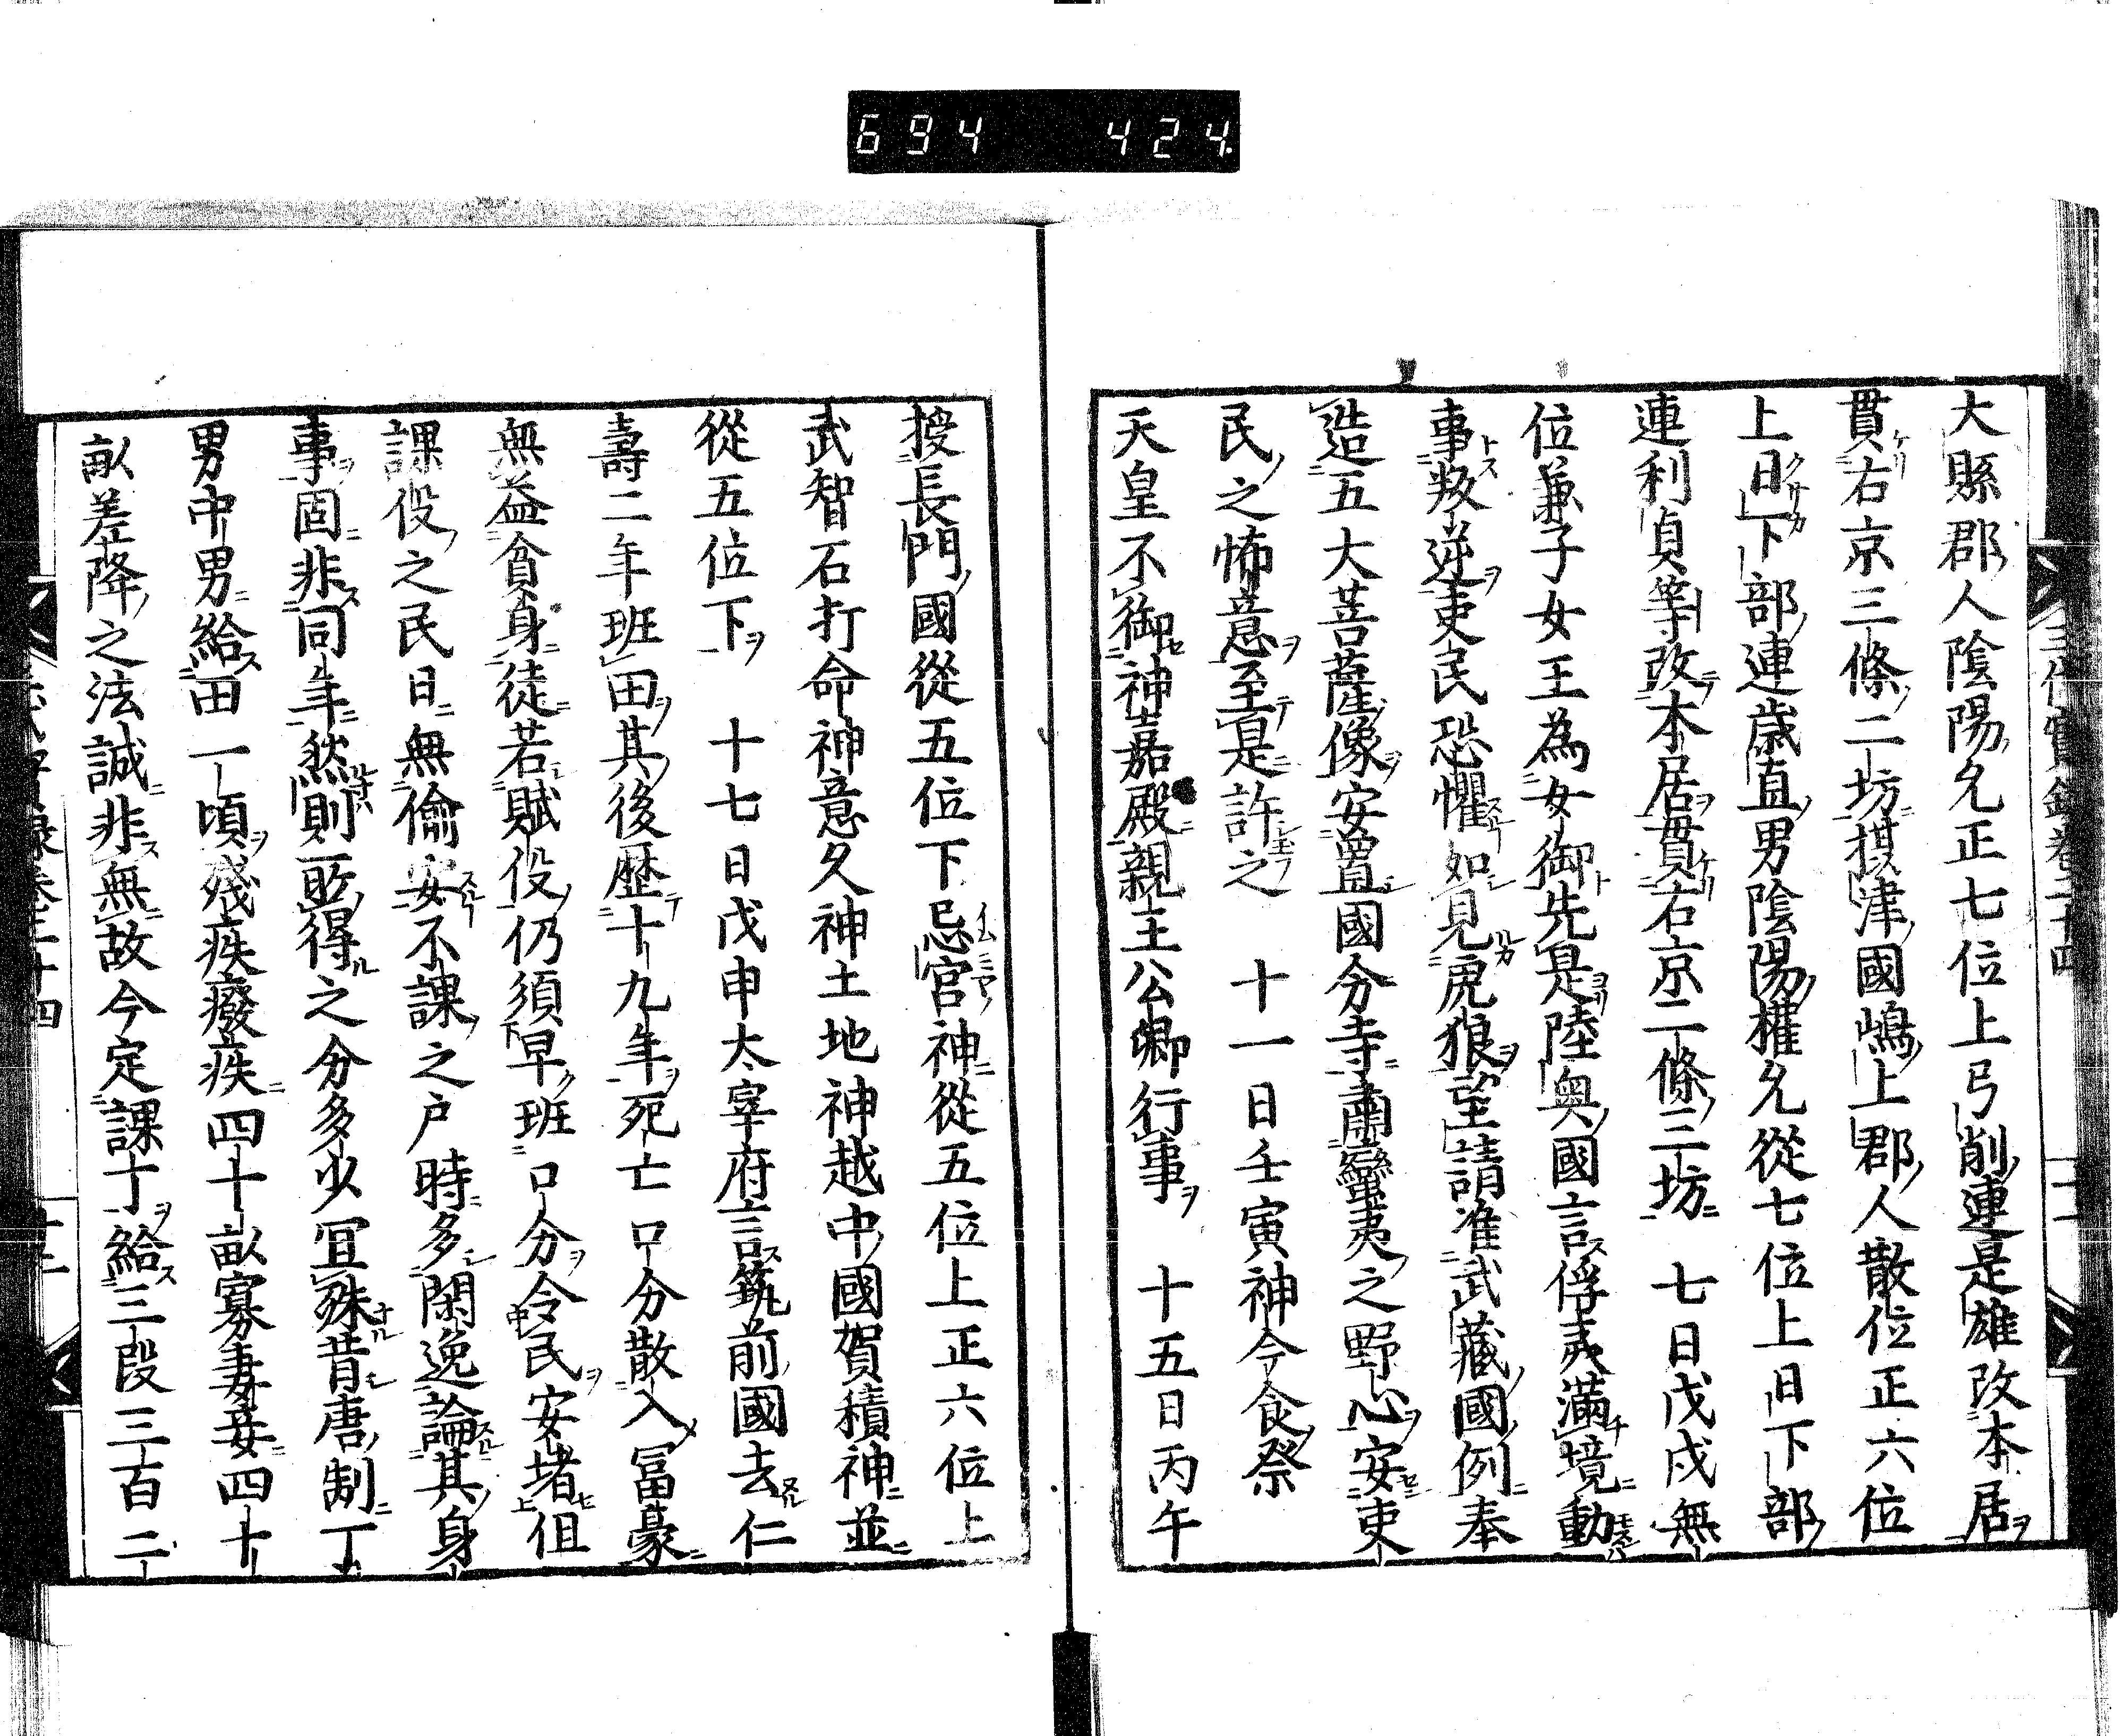 694 424
大縣郡人陰陽允正七位上弓削連是雄改本居
貫右京三條二坊摂津國嶋上郡人散位正六位
上日下部連歳直男陰陽權允從七位上日下部
連利貞等改本居貫右京二條三坊 七日戊戌無
位兼子女王為女御先是陸奥國言俘夷滿境動
事叛逆吏民恐懼如見虎狼望請准武藏國例奉
造五大菩薩像安置國分寺肅蠻夷之野心安吏
民之怖意至是許之 十一日壬寅神今食祭
天皇不御神嘉殿親王公卿行事 十五日丙午
授長門國從五位下忌宮神從五位上正六位上
武智石打命神意久神土地神越中國賀積神並
從五位下 十七日戊申太宰府言筑前國去仁
壽二年班田其後歴十九年死亡口分散入冨豪
無益貧身徒若賦役仍須早班口分令民安堵但
課役之民日無偷安不課之户時多閑逸論其身
事固非同年然則所得之分多少冝殊昔唐制丁
男中男給田一頃殘疾癈疾四十畝寡妻妾四十
畝差降之法誠非無故今定課丁給三段三百二